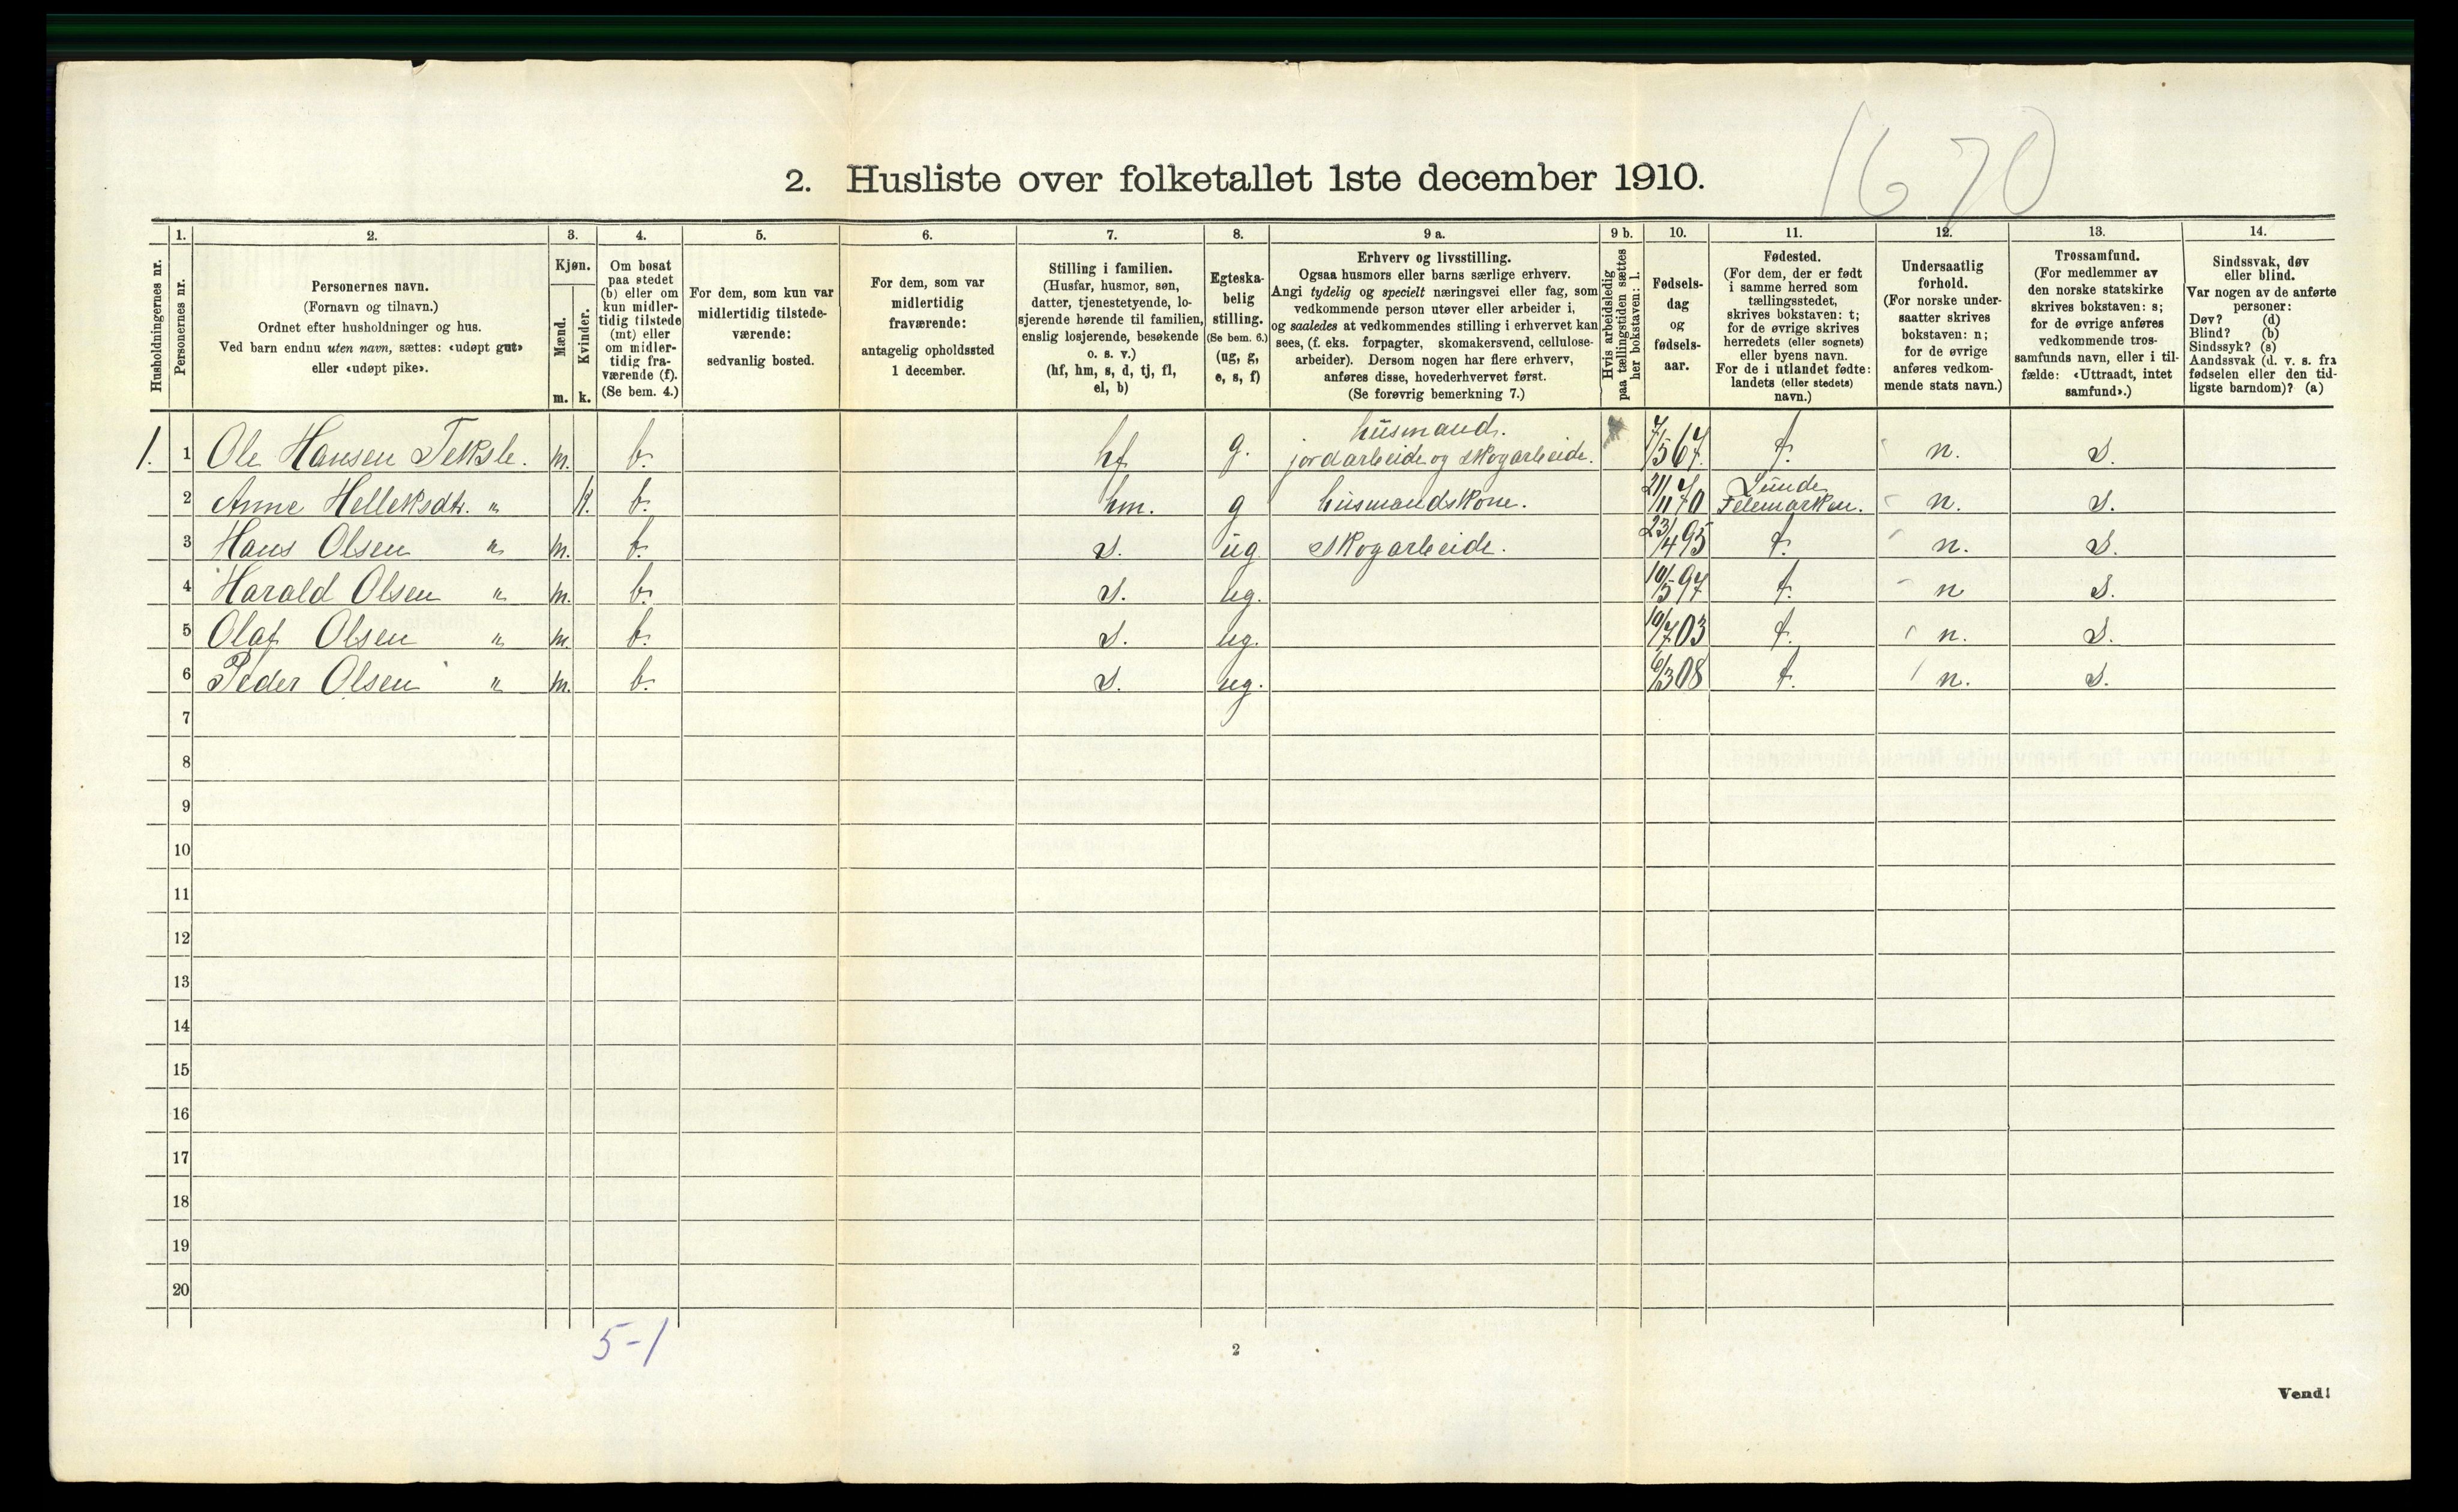 1670
2. Husliste over folketallet 1ste december 1910.
Husholdningernes nr.
1.
Personernes nr.
2.
Personernes navn.
(Fornavn og tilnavn.)
Ordnet efter husholdninger og hus.
Ved barn endnu uten navn, sættes: «udøpt gut»
eller «udøpt pike».
3.
Kjøn.
Mænd.
m.
Kvinder.
k.
4.
Om bosat
paa stedet
(b) eller om
kun midler-
tidig tilstede
(mt) eller
om midler-
tidig fra-
værende (f).
(Se bem. 4.)
5.
For dem, som kun var
midlertidig tilstede-
værende:
sedvanlig bosted.
6.
For dem, som var
midlertidig
fraværende:
antagelig opholdssted
1 december.
7.
Stilling i familien.
(Husfar, husmor, søn,
datter, tjenestetyende, lo-
sjerende hørende til familien,
enslig losjerende, besøkende
o. s. v.)
(hf, hm, s, d, tj, fl,
el, b)
8.
Egteska-
belig
stilling.
(Se bem. 6.)
(ug, g,
e, s, f)
9 a.
Erhverv og livsstilling.
Ogsaa husmors eller barns særlige erhverv.
Angi tydelig og specielt næringsvei eller fag, som
vedkommende person utøver eller arbeider i,
og saaledes at vedkommendes stilling i erhvervet kan
sees, (f. eks. forpagter, skomakersvend, cellulose-
arbeider). Dersom nogen har flere erhverv,
anføres disse, hovederhvervet først.
(Se forøvrig bemerkning 7.)
9 b.
Hvis arbeidsledig
paa tællingstiden sættes
her bokstaven: l.
10.
Fødsels-
dag
og
fødsels-
aar.
11.
Fødested.
(For dem, der er født
i samme herred som
tællingsstedet,
skrives bokstaven: t;
for de øvrige skrives
herredets (eller sognets)
eller byens navn.
For de i utlandet fødte:
landets (eller stedets)
navn.)
12.
Undersaatlig
forhold.
(For norske under-
saatter skrives
bokstaven: n;
for de øvrige
anføres vedkom-
mende stats navn.)
13.
Trossamfund.
(For medlemmer av
den norske statskirke
skrives bokstaven: s;
for de øvrige anføres
vedkommende tros-
samfunds navn, eller i til-
fælde: «Uttraadt, intet
samfund».)
14.
Sindssvak, døv
eller blind.
Var nogen av de anførte
personer:
Døv? (d)
Blind? (b)
Sindssyk? (s)
Aandssvak (d. v. s. fra
fødselen eller den tid-
ligste barndom)? (a)
1. 1 Ole Hansen Teksle. m. b. hf g. husmand. jordarbeide og skogarbeide. 7/5 67. t. n. s.
2 Anne Helleksdtr. " k. b. hm. g husmandskone. 21/11 70 Lunde Telemarken. n. s.
3 Hans Olsen " m. b. s. ug skogarbeide. 23/4 95 t. n. s.
4 Harald Olsen " m. b. s. ug. 10/5 97 t. n s.
5 Olaf Olsen " m. b. s. ug. 10/7 03 t. n. s.
6 Peder Olsen " m. b. s. ug. 6/3 08 t. n. s.
7
8
9
10
11
12
13
14
15
16
17
18
19
20
5-1
2
Vend!